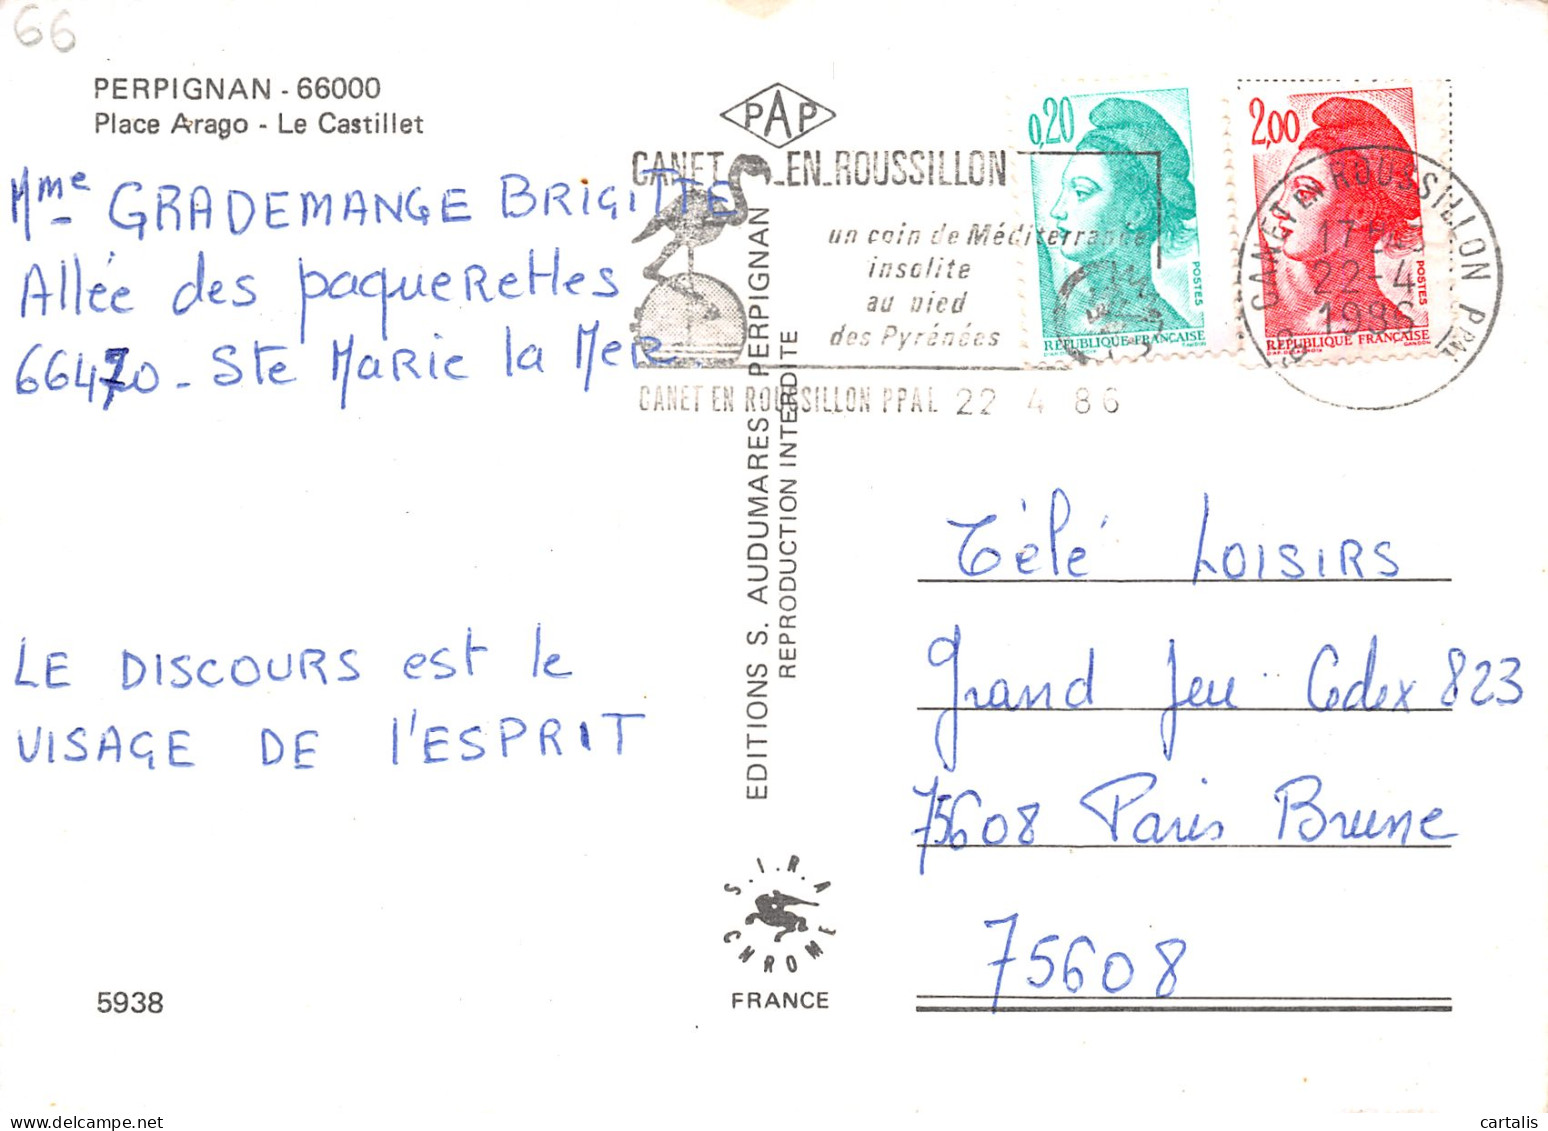 66
PERPIGNAN - 66000
Place Arago - Le Castillet
Mme GRADEMANGE BRIGITTE
Allée des paquerettes
66470 - Ste MARIE la MER.
LE DISCOURS est le
VISAGE DE l'ESPRIT
5938
PAP
CANET_EN_ROUSSILLON
un coin de Méditerranée
insolite
au pied
des Pyrénées
CANET EN ROUSSILLON PPAL 22 4 86
EDITIONS S. AUDUMARES PERPIGNAN
REPRODUCTION INTERDITE
S.I.R.A
CHROME
FRANCE
0,20
POSTES
RÉPUBLIQUE FRANÇAISE
2,00
POSTES
RÉPUBLIQUE FRANÇAISE
CANET EN ROUSSILLON PPAL
22-4
1986
Télé LOISIRS
Grand Jeu Cedex 823
75608 Paris Brune
75608
cartalis